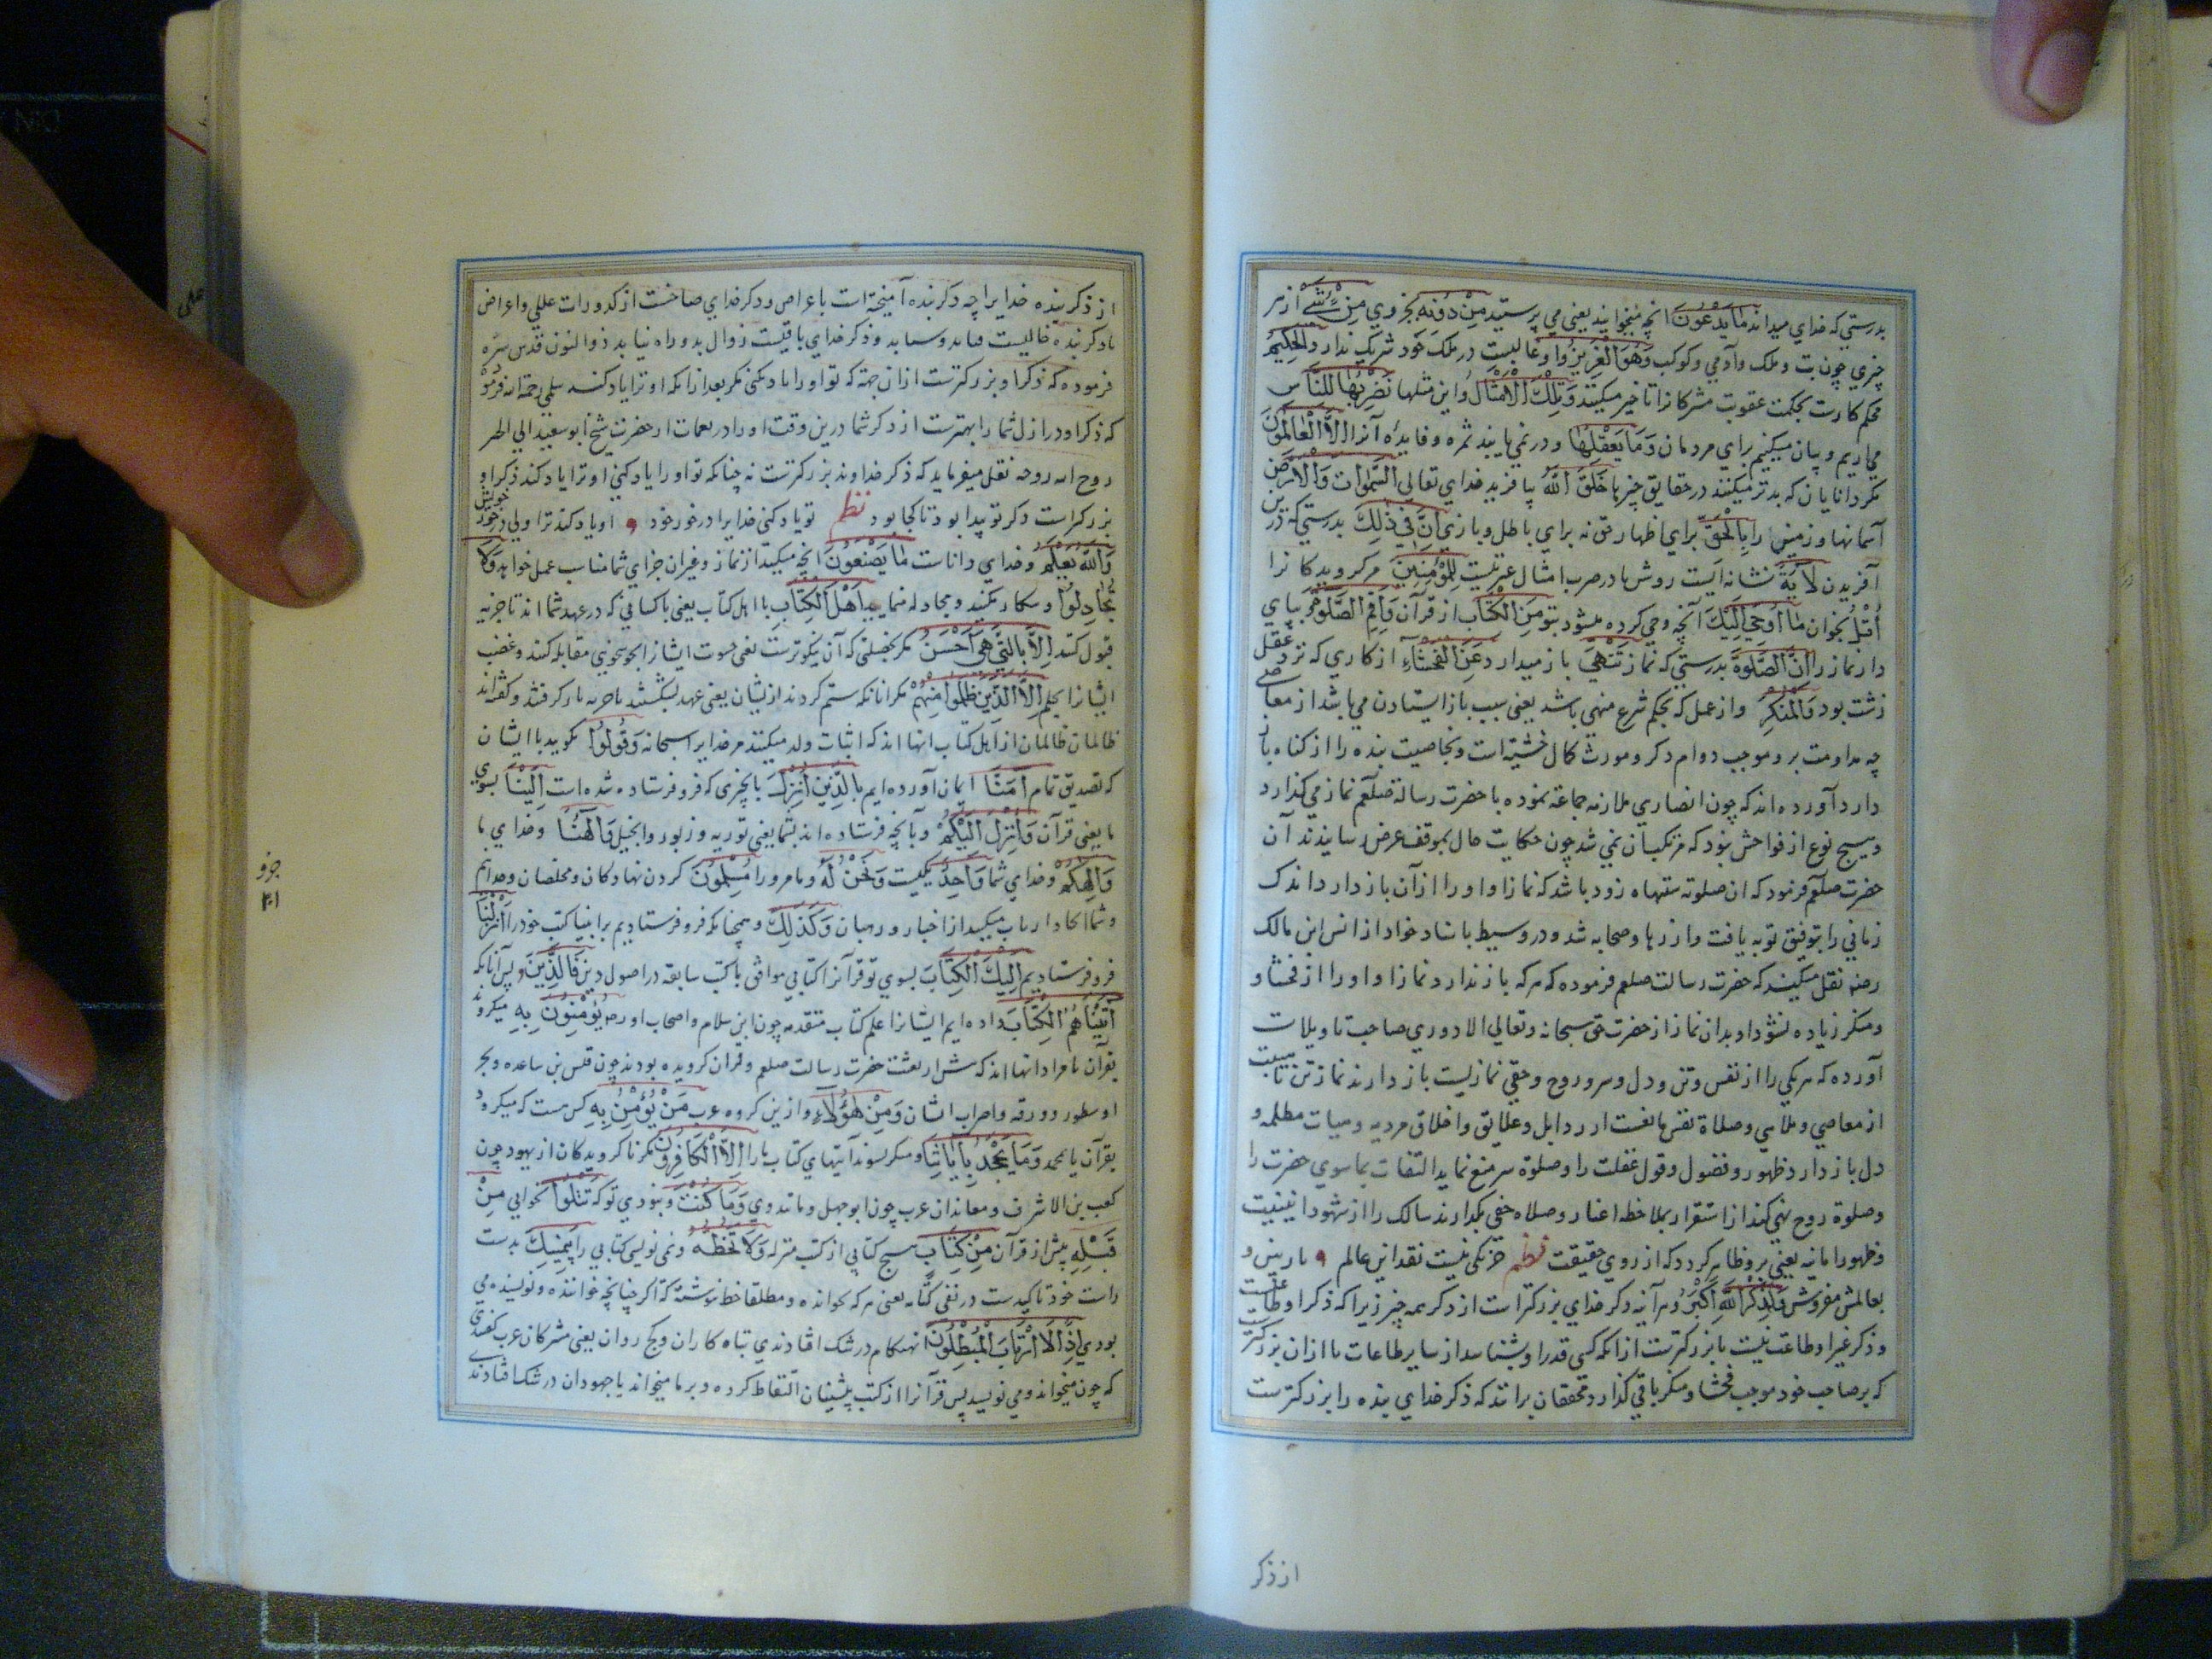 بدرستي که خداي ميداند مَا يَدْعُونَ انچه ميخوانيد يعني مي پرستيد مِنْ دُونِهِ بجز وي مِنْ شَيْءٍ از هر
چيزي چون بت و ملک و آدمي و کوکب وَهُوَ الْعَزِيزُ و او غالبست در ملک خود شريک ندارد الْحَكِيمُ
محکم کارست بحکمت عقوبت مشرکانرا تاخير ميکند وَتِلْكَ الْأَمْثَالُ و اين مثلها نَضْرِبُهَا لِلنَّاسِ
مي اريم و بيان ميکنيم براي مردمان وَمَا يَعْقِلُهَا و در نمي يابند ثمره و فايده آنرا إِلَّا الْعَالِمُونَ
مکر دانايان که تدبر ميکنند در حقايق چيزها خَلَقَ اللَّهُ بيافريد خداي تعالي السَّمٰوَاتِ وَالْأَرْضَ
آسمانها و زمين را بِالْحَقِّ براي اظهار حق نه براي باطل و بازي إِنَّ فِي ذٰلِكَ بدرستي که در اين
آفريدن لَآيَةً نشانه ايست روشن يا در ضرب امثال عبرتيست لِلْمُؤْمِنِينَ مر کرويدکانرا
اُتْلُ بخوان مَا أُوحِيَ إِلَيْكَ آنچه وحي کرده ميشود بتو مِنَ الْكِتَابِ از قرآن وَأَقِمِ الصَّلٰوةَ و بپاي
دار نماز را إِنَّ الصَّلٰوةَ بدرستي که نماز تَنْهٰى باز ميدارد عَنِ الْفَحْشَاءِ از کاري که نزد عقل
زشت بود وَالْمُنْكَرِ و از عمل که بحکم شرع منهي باشد يعني سبب باز ايستادن مي باشد از معاصي
چه مداومت بر و موجب دوام ذکر و مورث کمال خشيت است و بخاصيت بنده را از کناه باز
دارد آورده اند که چون انصاري ملازمه جماعة نموده با حضرت رسالة صلعم نماز مي کذارد
و هيچ نوع از فواحش نبود که مرتکب آن نمي شد چون حکايت حال بموقف عرض رسانيدند آن
حضرت صلعم فرمود که ان صلوته ستنهاه زود باشد که نماز او او را از آن باز دارد اندک
زماني را بتوفيق توبه يافت و از زهاد صحابه شد و در وسيط باسناد خود از انس ابن مالک
رضه نقل ميکند که حضرت رسالت صلعم فرموده که هر که باز ندارد نماز او او را از فحشا و
ومنکر زياده نشود او بدان نماز از حضرت حق سبحانه و تعالي الا دوري صاحب تاويلات
آورده که هر يکي را از نفس و تن و دل و سر و روح و خفي نمازيست باز دارند نماز تن
از معاصي و ملاهي و صلاة نفس
دل باز دارد ظهور و فضول و قول غفلت را و صلوة سر منع نمايد التفات بما سوي حضرت را
وصلوة روح نهي کند از استقرار بملاحظه اغيار و صلاه خفي بکذارند سالک را از شهود اثنينيت
و ظهور انانيه يعني برو ظاهر کردد که از روي حقيقت نظم جز يکي نيست نقد اين عالم باز بين و
بعالمش مفروش وَلَذِكْرُ اللَّهِ أَكْبَرُ و هر آينه ذکر خداي بزرکتر است از ذکر همه چيز زيرا که ذکر او طاعت است
و ذکر غير او طاعت نيست يا بزرکترست از انکه کسي قدر او بشناسد از ساير طاعات يا از ان بزرکتر
که بر صاحب خود موجب فحشا و منکر باقي کذارد و محققان برانند که ذکر خداي بنده را بزرکترست
از ذکر
از ذکر بنده خدايرا چه ذکر بنده آميخته است باعراض و ذکر خداي صافست از کدورات عللي و اعراض
فرموده که ذکر او بزرکترست ازان جهة که تو او را ياد کني مکر بعد ازانکه او ترا ياد کند سلمي رحمة الله فرمود
که ذکر او در ازل شما را بهترست از ذکر شما درين وقت او را حضرت شيخ ابو سعيد ابي الخير
روح الله روحه نقل ميفرمايد که ذکر خداوند بزرکترست نه چنانکه تو او را ياد کني او ترا ياد کند ذکر او
بزرکتراست ذکر تو پيدا بود تا کجا بود نظم تو ياد کني خدايرا در خور خود او ياد کند ترا ولي در خور خويش
وَاللَّهُ يَعْلَمُ و خداي داناست مَا يَصْنَعُونَ انچه ميکنيد از نماز و غير ان جزاي شما مناسب عمل خواهد وَلَا
تُجَادِلُوا و پيکار مکنيد و مجادله منماييد أَهْلَ الْكِتَابِ با اهل کتاب يعني با کساني که در عهد شما اند تا جزيه
قبول کنند إِلَّا بِالَّتِي هِيَ أَحْسَنُ مکر بخصلتي که آن نيکوترست يعني خشونت ايشانرا بخوشخويي مقابله کنند و غضب
ايشانرا بحلم إِلَّا الَّذِينَ ظَلَمُوا مِنْهُمْ مکر انانکه ستم کردند از ايشان يعني عهد بشکستند يا جزيه باز کرفتند و کفته اند
ظالمان ظالمان از اهل کتاب انها اند که اثبات ولد ميکنند مر خدايرا سبحانه وَقُولُوا بکوييد با ايشان
که تصديق تمام آمَنَّا ايمان آورده ايم بِالَّذِي أُنْزِلَ بانچيزي که فرو فرستاده شده است إِلَيْنَا بسوي
ما يعني قرآن وَأُنْزِلَ إِلَيْكُمْ و بآنچه فرستاده اند بشما يعني توريه و زبور و انجيل وَإِلٰهُنَا و خداي ما
وَإِلٰهُكُمْ و خداي شما وَاحِدٌ يکيست وَنَحْنُ لَهُ و ما مر ورا مُسْلِمُونَ کردن نهادکان و مخلصان و
وَكَذٰلِكَ و همچنانکه فرو فرستاديم بر انبيا کتب خود را أَنْزَلْنَا
فرو فرستاديم إِلَيْكَ الْكِتَابَ بسوي تو قرآنرا کتابي موافق با کتب سابقه در اصول دين فَالَّذِينَ پس آنانکه
آتَيْنَاهُمُ الْكِتَابَ داده ايم ايشانرا علم کتاب متقدمه چون ابن سلام و اصحاب او رضه يُؤْمِنُونَ بِهِ ميکروند
بقرآن يا مراد انها اند که پيش از بعثت حضرت رسالت صلعم و قرآن کرويده بودند چون قس بن ساعده و بحيرا
و ورقه و اضراب ايشان وَمِنْ هٰؤُلَاءِ و ازين کروه عرب مَنْ يُؤْمِنُ بِهِ کس هست که ميکرود
بقرآن يا بمحمد وَمَا يَجْحَدُ بِآيَاتِنَا و منکر نشوند آيتهاي کتاب ما را إِلَّا الْكَافِرُونَ مکر ناکرويدکان از يهود چون
کعب بن الاشرف و معاندان عرب چون ابو جهل و مانند وي وَمَا كُنْتَ و نبودي تو که تَتْلُوا بخواني مِنْ
قَبْلِهِ پيش از قرآن مِنْ كِتَابٍ هيچ کتابي از کتب منزله وَلَا تَخُطُّهُ و نمي نويسي کتابي را بِيَمِينِكَ بدست
راست خود تاکيدست در نفي کتابت يعني هر که نخوانده و مطلقا خط ننوشته که اکر چنانچه خواننده و نويسنده مي
بودي إِذًا لَارْتَابَ الْمُبْطِلُونَ انهنکام در شک افتادندي تباه کاران و کج روان يعني مشرکان عرب کفتندي
که چون ميخواند و مي نويسد پس قرآنرا از کتب پيشينان التقاط کرده و بر ما ميخواند يا جهودان در شک افتادندي
جزو
۲۱